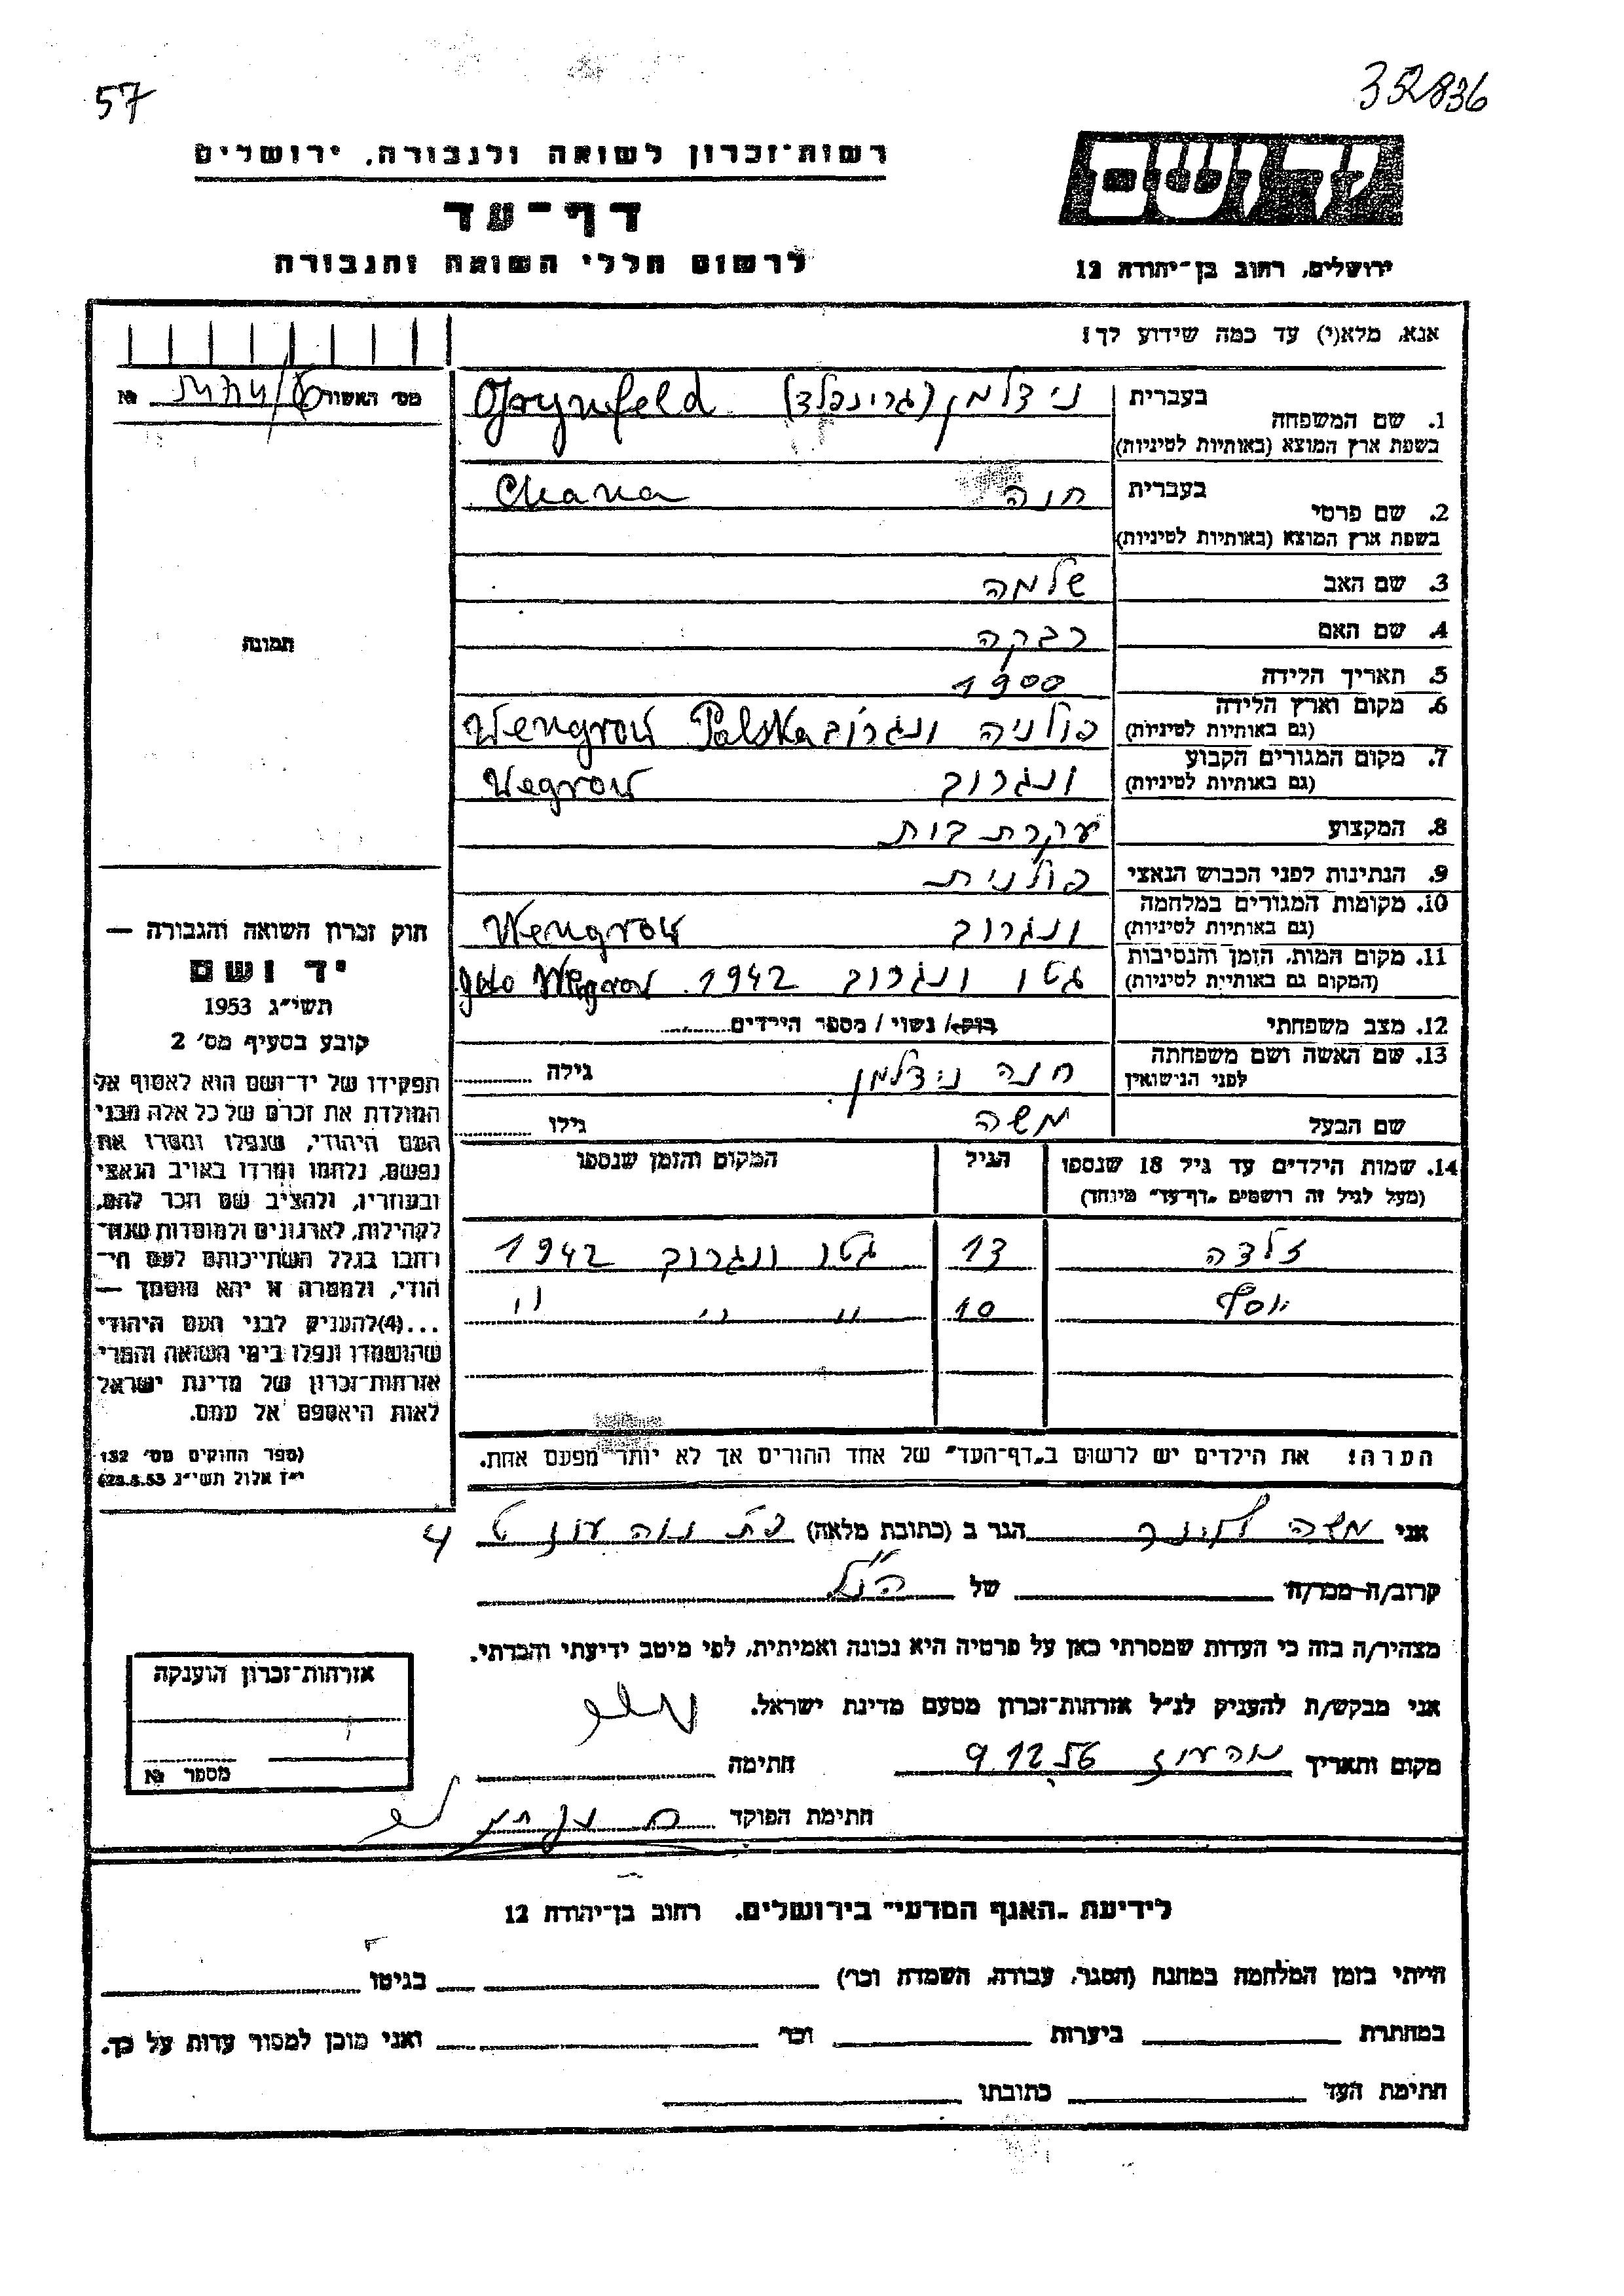 57
352836
רשות־זכרון לשואה ולגבורה, ירושלים
יד ושם
דף־עד
לרשום חללי השואה והגבורה
ירושלים, רחוב בן־יהודה 12
אנא, מלא(י) עד כמה שידוע לך!
מס׳ האשור №
1. שם המשפחה
בעברית נידלמן (גרינפלד) Grynfeld
בשפת ארץ המוצא (באותיות לטיניות)
2. שם פרטי
בעברית חנה Chana
בשפת ארץ המוצא (באותיות לטיניות)
3. שם האב שלמה
4. שם האם רבקה
תמונה
5. תאריך הלידה 1900
6. מקום וארץ הלידה
(גם באותיות לטיניות) פולניה ונגרוב Wengrow Polska
7. מקום המגורים הקבוע
(גם באותיות לטיניות) ונגרוב Wegrow
8. המקצוע עקרת בית
9. הנתינות לפני הכבוש הנאצי פולנית
10. מקומות המגורים במלחמה
(גם באותיות לטיניות) ונגרוב Wengrow
11. מקום המות, הזמן והנסיבות
(המקום גם באותיות לטיניות) גטו ונגרוב 1942. geto Wegrow
12. מצב משפחתי רוק/ נשוי / מספר הילדים
13. שם האשה ושם משפחתה
לפני הנישואין חנה נידלמן גילה
שם הבעל משה גילו
14. שמות הילדים עד גיל 18 שנספו הגיל המקום והזמן שנספו
(מעל לגיל זה רושמים „דף־עד״ מיוחד)
זלדה 13 גטו ונגרוב 1942
יוסף 10 " " "
הערה! את הילדים יש לרשום ב„דף־העד״ של אחד ההורים אך לא יותר מפעם אחת.
חוק זכרון השואה והגבורה —
יד ושם
תשי״ג 1953
קובע בסעיף מס׳ 2
תפקידו של יד־ושם הוא לאסוף אל
המולדת את זכרם של כל אלה מבני
העם היהודי, שנפלו ומסרו את
נפשם, נלחמו ומרדו באויב הנאצי
ובעוזריו, ולהציב שם וזכר להם,
לקהילות, לארגונים ולמוסדות שנח־
רחבו בגלל השתייכותם לעם הי־
הודי, ולמטרה זו יהא מוסמך —
...(4)להעניק לבני העם היהודי
שהושמדו ונפלו בימי השואה והמרי
אזרחות־זכרון של מדינת ישראל
לאות היאספם אל עמם.
(ספר החוקים מס׳ 132
י״ז אלול תשי״ג 28.8.53)
אני משה הגר ב (כתובת מלאה)
קרוב/ה מכר/ה של הנ״ל
מצהיר/ה בזה כי העדות שמסרתי כאן על פרטיה היא נכונה ואמיתית, לפי מיטב ידיעתי והכרתי.
אני מבקש/ת להעניק לנ״ל אזרחות־זכרון מטעם מדינת ישראל.
מקום ותאריך 9.12.56 חתימה
חתימת הפוקד
אזרחות־זכרון הוענקה
מספר №
לידיעת „האגף המדעי״ בירושלים, רחוב בן־יהודה 12
הייתי בזמן המלחמה במחנה (הסגר, עבודה, השמדה וכו׳) בגיטו
במחתרת ביערות וכו׳ ואני מוכן למסור עדות על כך.
חתימת העד כתובתו